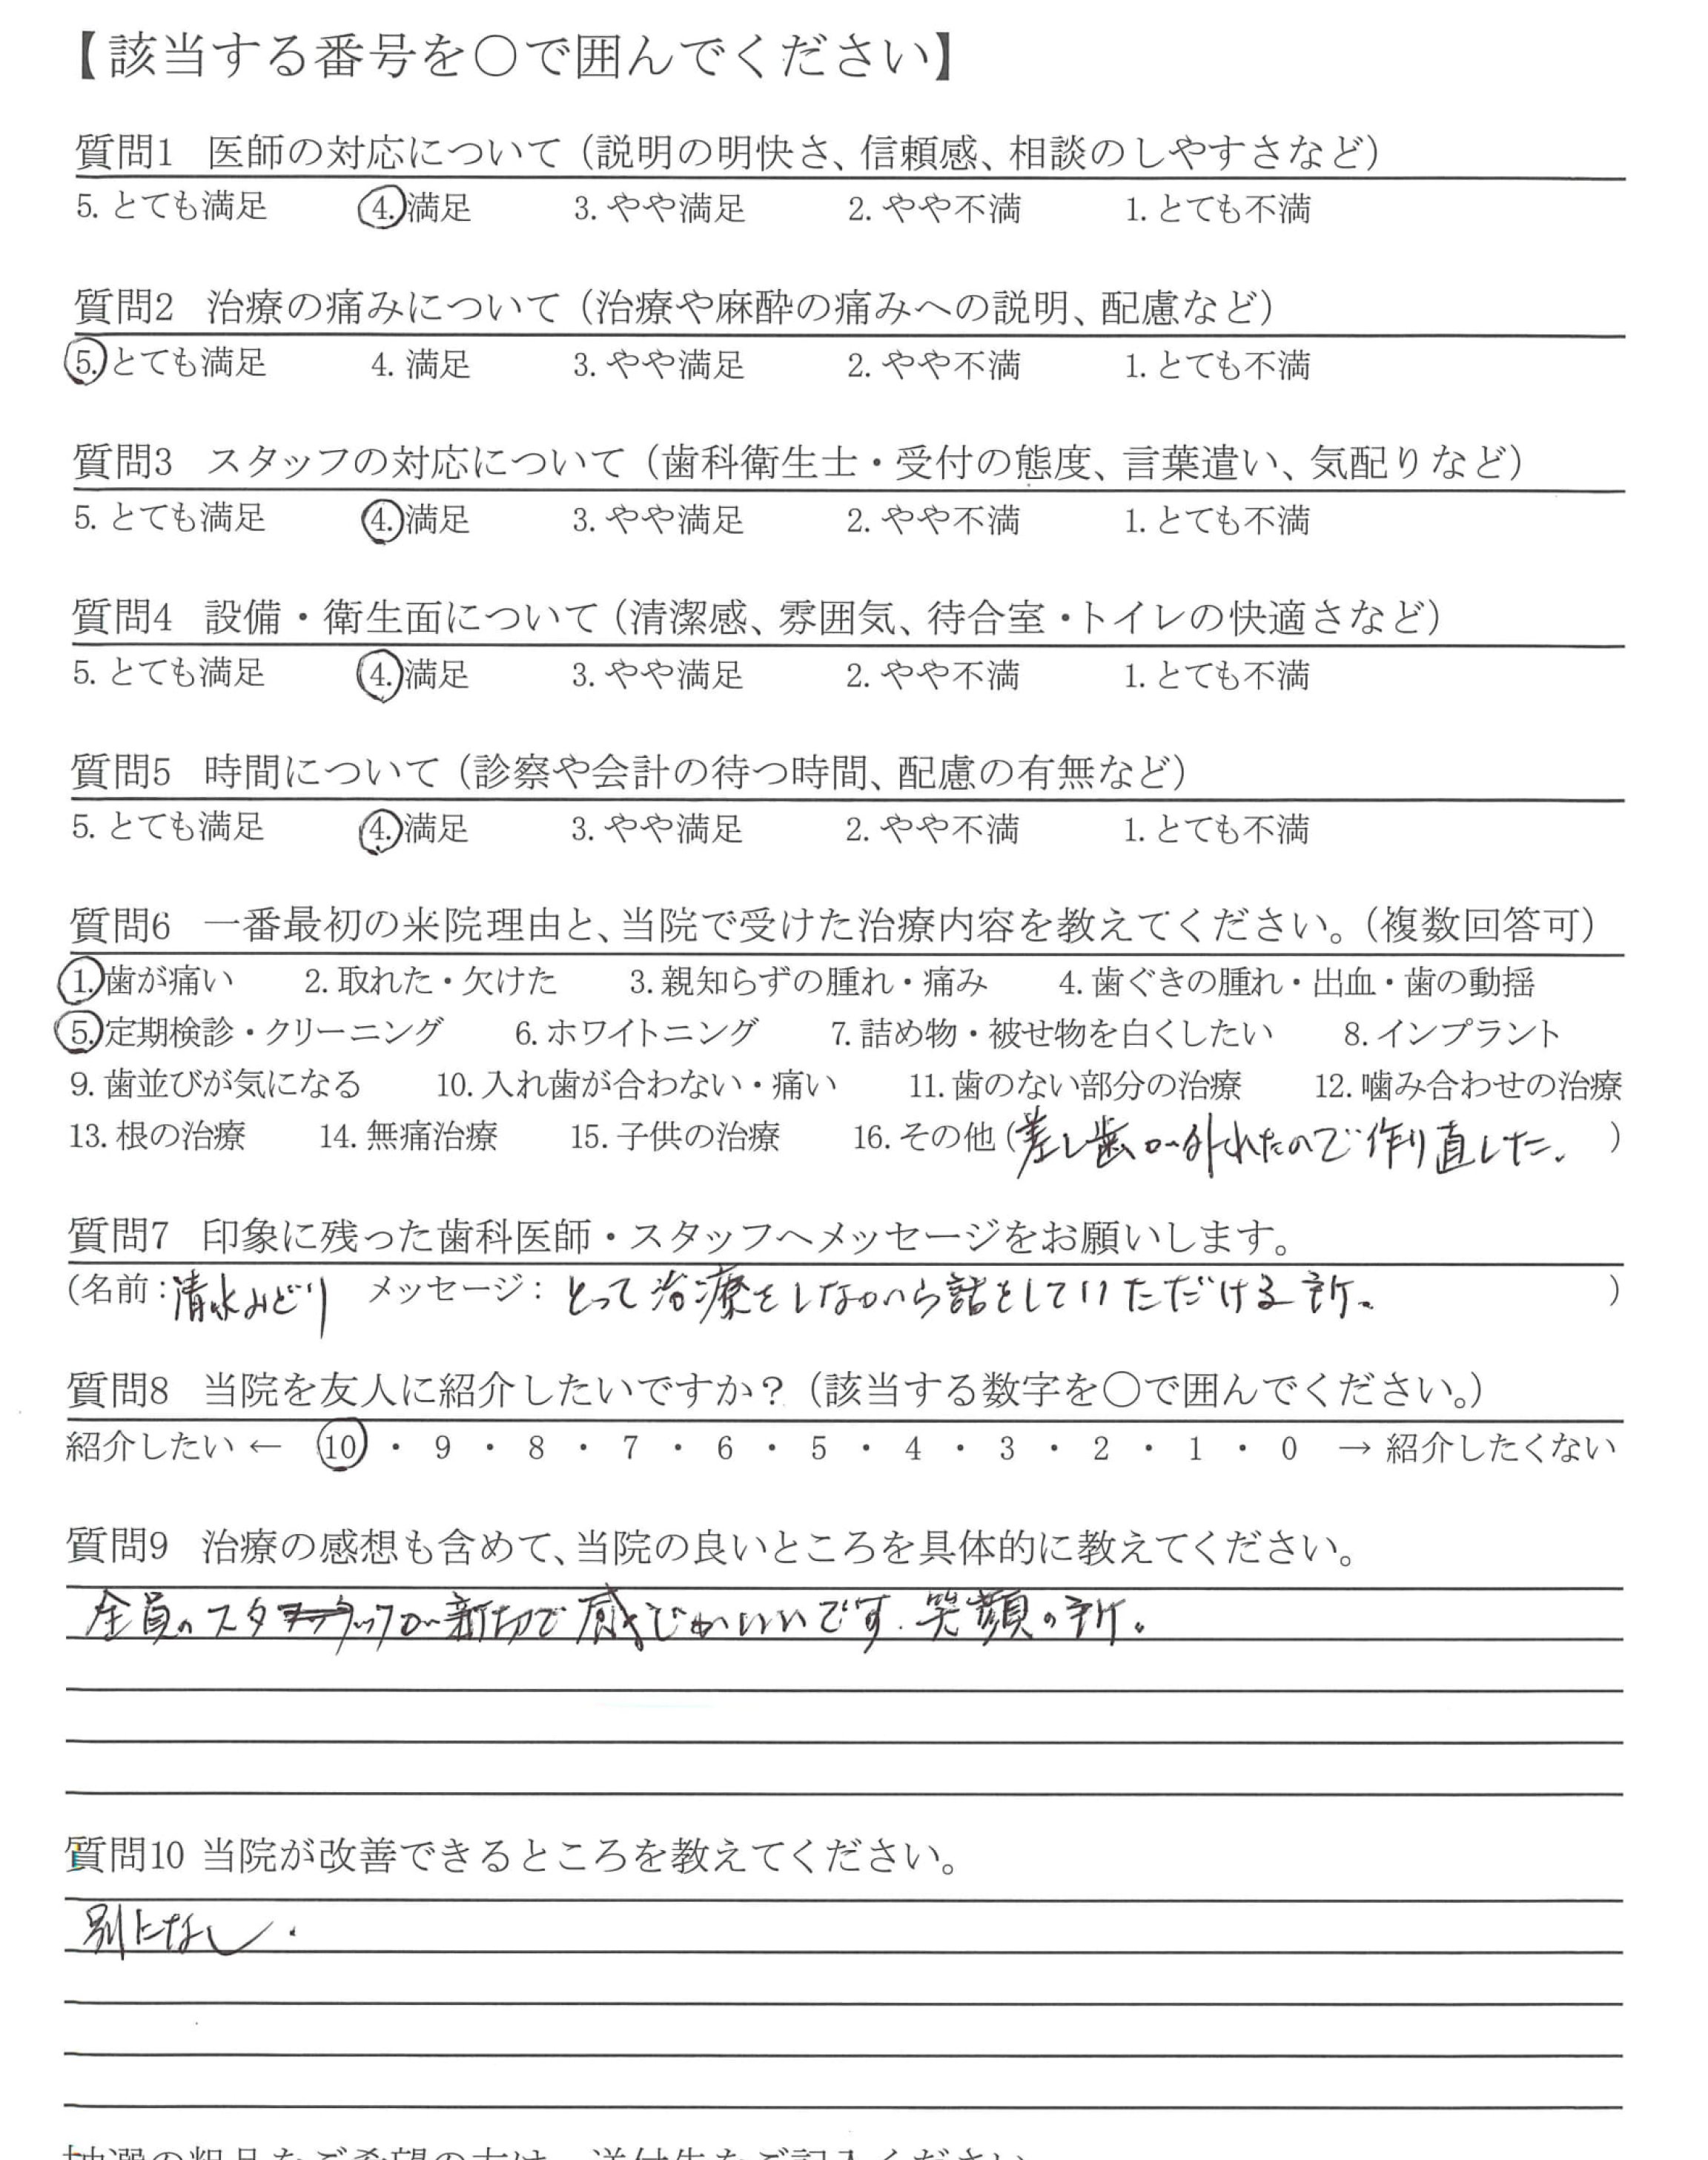 【該当する番号を○で囲んでください】
質問1 医師の対応について（説明の明快さ、信頼感、相談のしやすさなど）
5. とても満足 4. 満足 3. やや満足 2. やや不満 1. とても不満
質問2 治療の痛みについて（治療や麻酔の痛みへの説明、配慮など）
5. とても満足 4. 満足 3. やや満足 2. やや不満 1. とても不満
質問3 スタッフの対応について（歯科衛生士・受付の態度、言葉遣い、気配りなど）
5. とても満足 4. 満足 3. やや満足 2. やや不満 1. とても不満
質問4 設備・衛生面について（清潔感、雰囲気、待合室・トイレの快適さなど）
5. とても満足 4. 満足 3. やや満足 2. やや不満 1. とても不満
質問5 時間について（診察や会計の待つ時間、配慮の有無など）
5. とても満足 4. 満足 3. やや満足 2. やや不満 1. とても不満
質問6 一番最初の来院理由と、当院で受けた治療内容を教えてください。（複数回答可）
1. 歯が痛い 2. 取れた・欠けた 3. 親知らずの腫れ・痛み 4. 歯ぐきの腫れ・出血・歯の動揺
5. 定期検診・クリーニング 6. ホワイトニング 7. 詰め物・被せ物を白くしたい 8. インプラント
9. 歯並びが気になる 10. 入れ歯が合わない・痛い 11. 歯のない部分の治療 12. 噛み合わせの治療
13. 根の治療 14. 無痛治療 15. 子供の治療 16. その他（差し歯が外れたので作り直した。）
質問7 印象に残った歯科医師・スタッフへメッセージをお願いします。
（名前：清水みどり メッセージ：とって治療をしながら話をしていただける所。）
質問8 当院を友人に紹介したいですか？（該当する数字を○で囲んでください。）
紹介したい ← 10 ・ 9 ・ 8 ・ 7 ・ 6 ・ 5 ・ 4 ・ 3 ・ 2 ・ 1 ・ 0 → 紹介したくない
質問9 治療の感想も含めて、当院の良いところを具体的に教えてください。
全員のスタッフが親切で感じがいいです。笑顔の所。
質問10 当院が改善できるところを教えてください。
別になし。